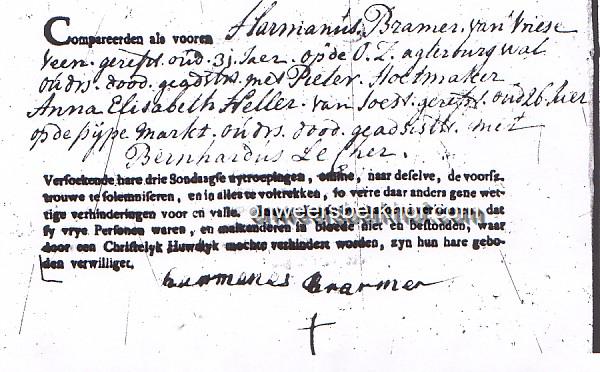 Compareerden als vooren Harmanus Bramer. van Vriese
veen. gerefst. oud. 31. Jaer. op de O. Z. agterburgwal
ouders. dood. geadsistr. met Pieter.
Anna Elisabeth Heller. van Soest. gerefst. oud 26. Jaer
op de pype Markt. ouders. dood. geadsistr. met
Bernhardus Lecher.
Versoekende hare drie Sondaagse uytroepingen, omme, naer deselve, de voorsz.
trouwe te solemniseren, en in alles te voltrekken, so verre daar anders gene wet-
tige verhinderingen voor en valle. dat
sy vrye Personen waren, en malkanderen in bloede niet en bestonden, waar
door een Christelyk Huwelyk mochte verhindert worden, zyn hun hare gebo-
den verwilliget.
onweersberkhof.com
harmanes Braamer